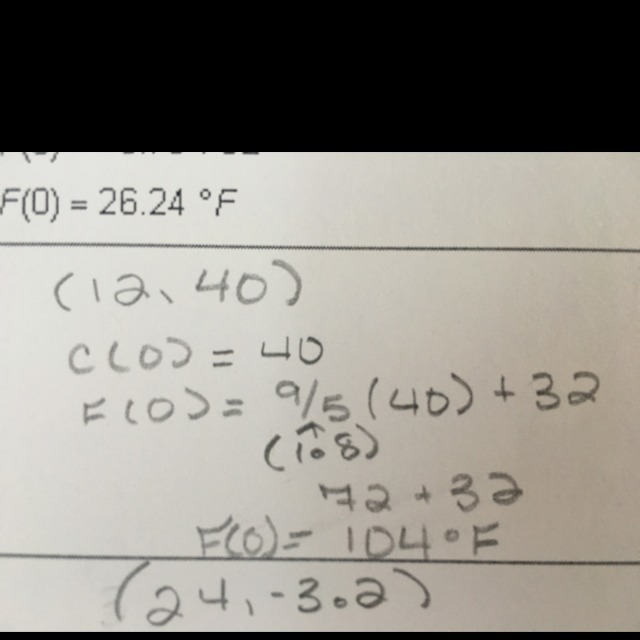 F(0) = 26.24 °F
(12, 40)
C(0) = 40
F(0) = 9/5 (40) + 32
(1.8)
72 + 32
F(0) = 104°F
(24, -3.2)